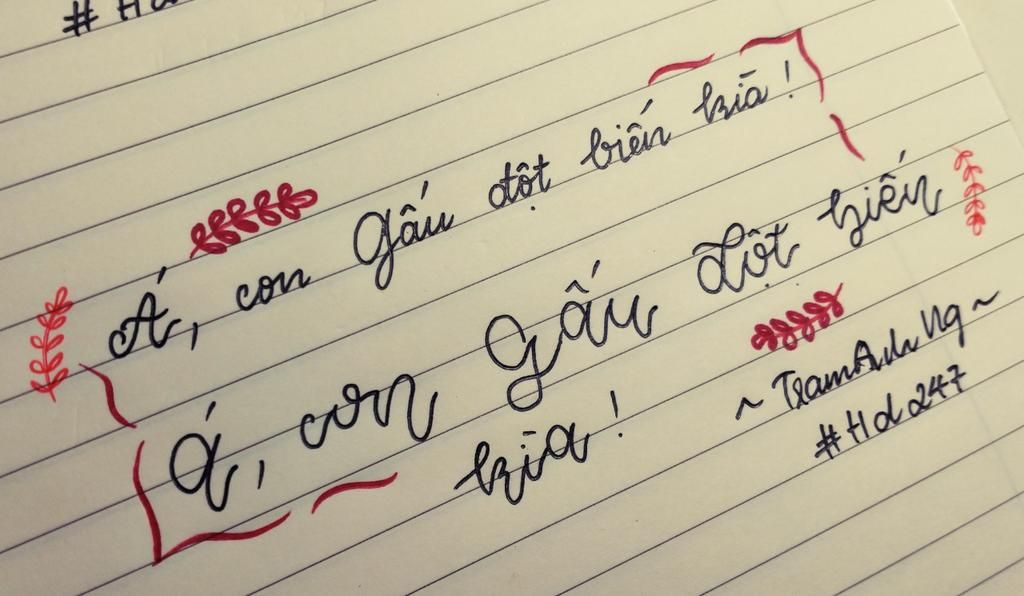 Á, con Gấu đột biến kìa!
Á, con Gấu Đột biến
kìa!
~ TramAnh Ng ~
#Hd247